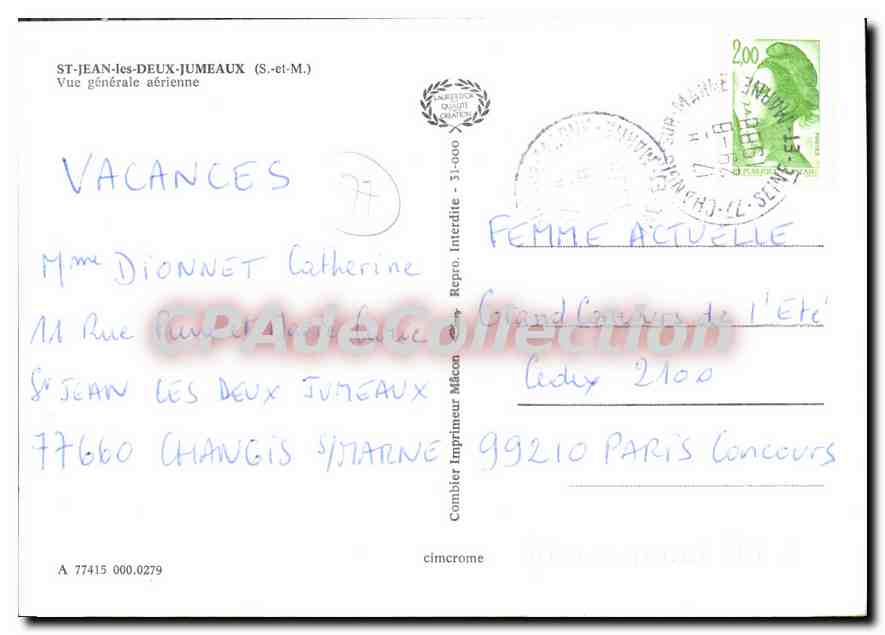 ST-JEAN-les-DEUX-JUMEAUX (S.-et-M.)
Vue générale aérienne
VACANCES
77
Mme DIONNET Catherine
11 Rue Pierre et Marie Curie
St JEAN LES DEUX JUMEAUX
77660 CHANGIS S/MARNE
A 77415 000.0279
LAURÉAT D'OR
QUALITÉ
CRÉATION
Combier Imprimeur Mâcon Repro. Interdite - 31-000
cimcrome
2,00
77-CHANGIS SUR-MARNE
SEINE-ET-MARNE
FEMME ACTUELLE
Grand Concours de l'Eté
Cedex 2100
99210 PARIS Concours
CPAdeCollection